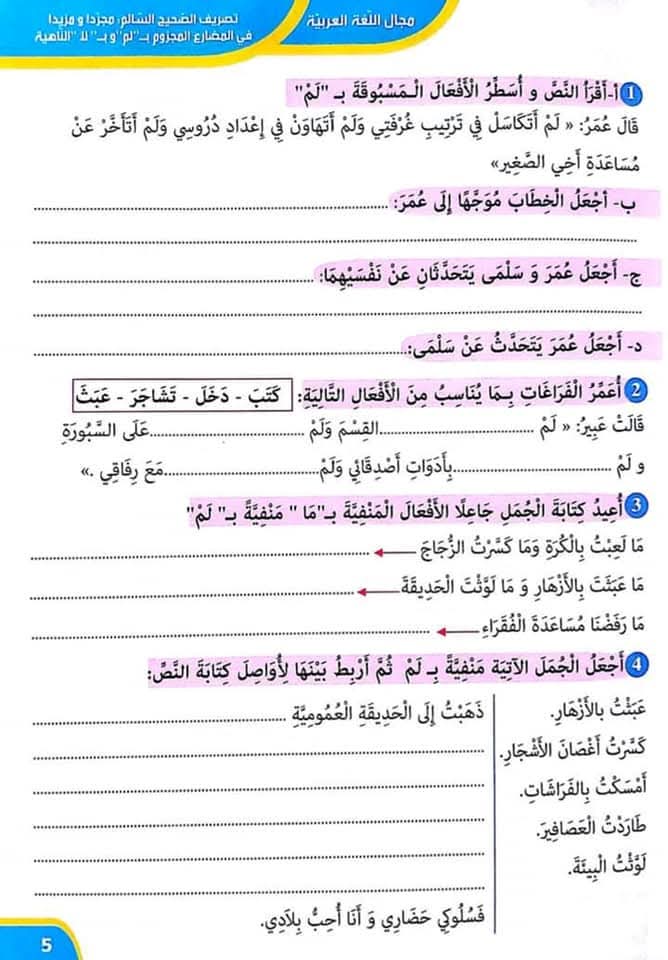 مجال اللغة العربية
تصريف الصحيح السالم: مجردا و مزيدا
في المضارع المجزوم بـ"لم" و بـ" لا "الناهية
1 أ-أَقْرَأُ النَّصَّ و أُسَطِّرُ الْأَفْعَالَ الْـمَسْبُوقَةَ بـ "لَمْ"
قَالَ عُمَرُ: « لَمْ أَتَكَاسَلْ فِي تَرْتِيبِ غُرْفَتِي وَلَمْ أَتَهَاوَنْ فِي إِعْدَادِ دُرُوسِي وَلَمْ أَتَأَخَّرْ عَنْ
مُسَاعَدَةِ أَخِي الصَّغِيرِ»
ب- أَجْعَلُ الْخِطَابَ مُوَجَّهًا إِلَى عُمَرَ: ........................
........................
ج- أَجْعَلُ عُمَرَ وَ سَلْمَى يَتَحَدَّثَانِ عَنْ نَفْسَيْهِمَا: ........................
........................
د- أَجْعَلُ عُمَرَ يَتَحَدَّثُ عَنْ سَلْمَى: ........................
2 أُعَمِّرُ الْفَرَاغَاتِ بِـمَا يُنَاسِبُ مِنَ الْأَفْعَالِ التَّالِيَةِ: كَتَبَ - دَخَلَ - تَشَاجَرَ - عَبَثَ
قَالَتْ عَبِيرُ: « لَمْ ........................ القِسْمَ وَلَمْ ........................ عَلَى السَّبُورَةِ
و لَمْ ........................ بِأَدَوَاتِ أَصْدِقَائِي وَلَمْ ........................ مَعَ رِفَاقِي .»
3 أُعِيدُ كِتَابَةَ الْجُمَلِ جَاعِلًا الأَفْعَالَ الْمَنْفِيَّةَ بـ"مَا " مَنْفِيَّةً بـ" لَمْ"
مَا لَعِبْتُ بِالْكُرَةِ وَمَا كَسَّرْتُ الزُّجَاجَ ← ........................
مَا عَبَثَتْ بِالأَزْهَارِ وَ مَا لَوَّثَتْ الْحَدِيقَةَ ← ........................
مَا رَفَضْنَا مُسَاعَدَةَ الْفُقَرَاءِ ← ........................
4 أَجْعَلُ الْجُمَلَ الآتِيَةَ مَنْفِيَّةً بـِ لَمْ ثُمَّ أَرْبِطُ بَيْنَهَا لِأُوَاصِلَ كِتَابَةَ النَّصِّ:
عَبَثْتُ بالأَزْهَارِ.
كَسَّرْتُ أَغْصَانَ الأَشْجَارِ.
أَمْسَكْتُ بِالفَرَاشَاتِ.
طَارَدْتُ الْعَصَافِيرَ.
لَوَّثْتُ الْبِيئَةَ.
ذَهَبْتُ إِلَى الْحَدِيقَةِ الْعُمُومِيَّةِ ........................
........................
........................
........................
........................
........................
فَسُلُوكِي حَضَارِي وَ أَنَا أُحِبُّ بِلَادِي.
5